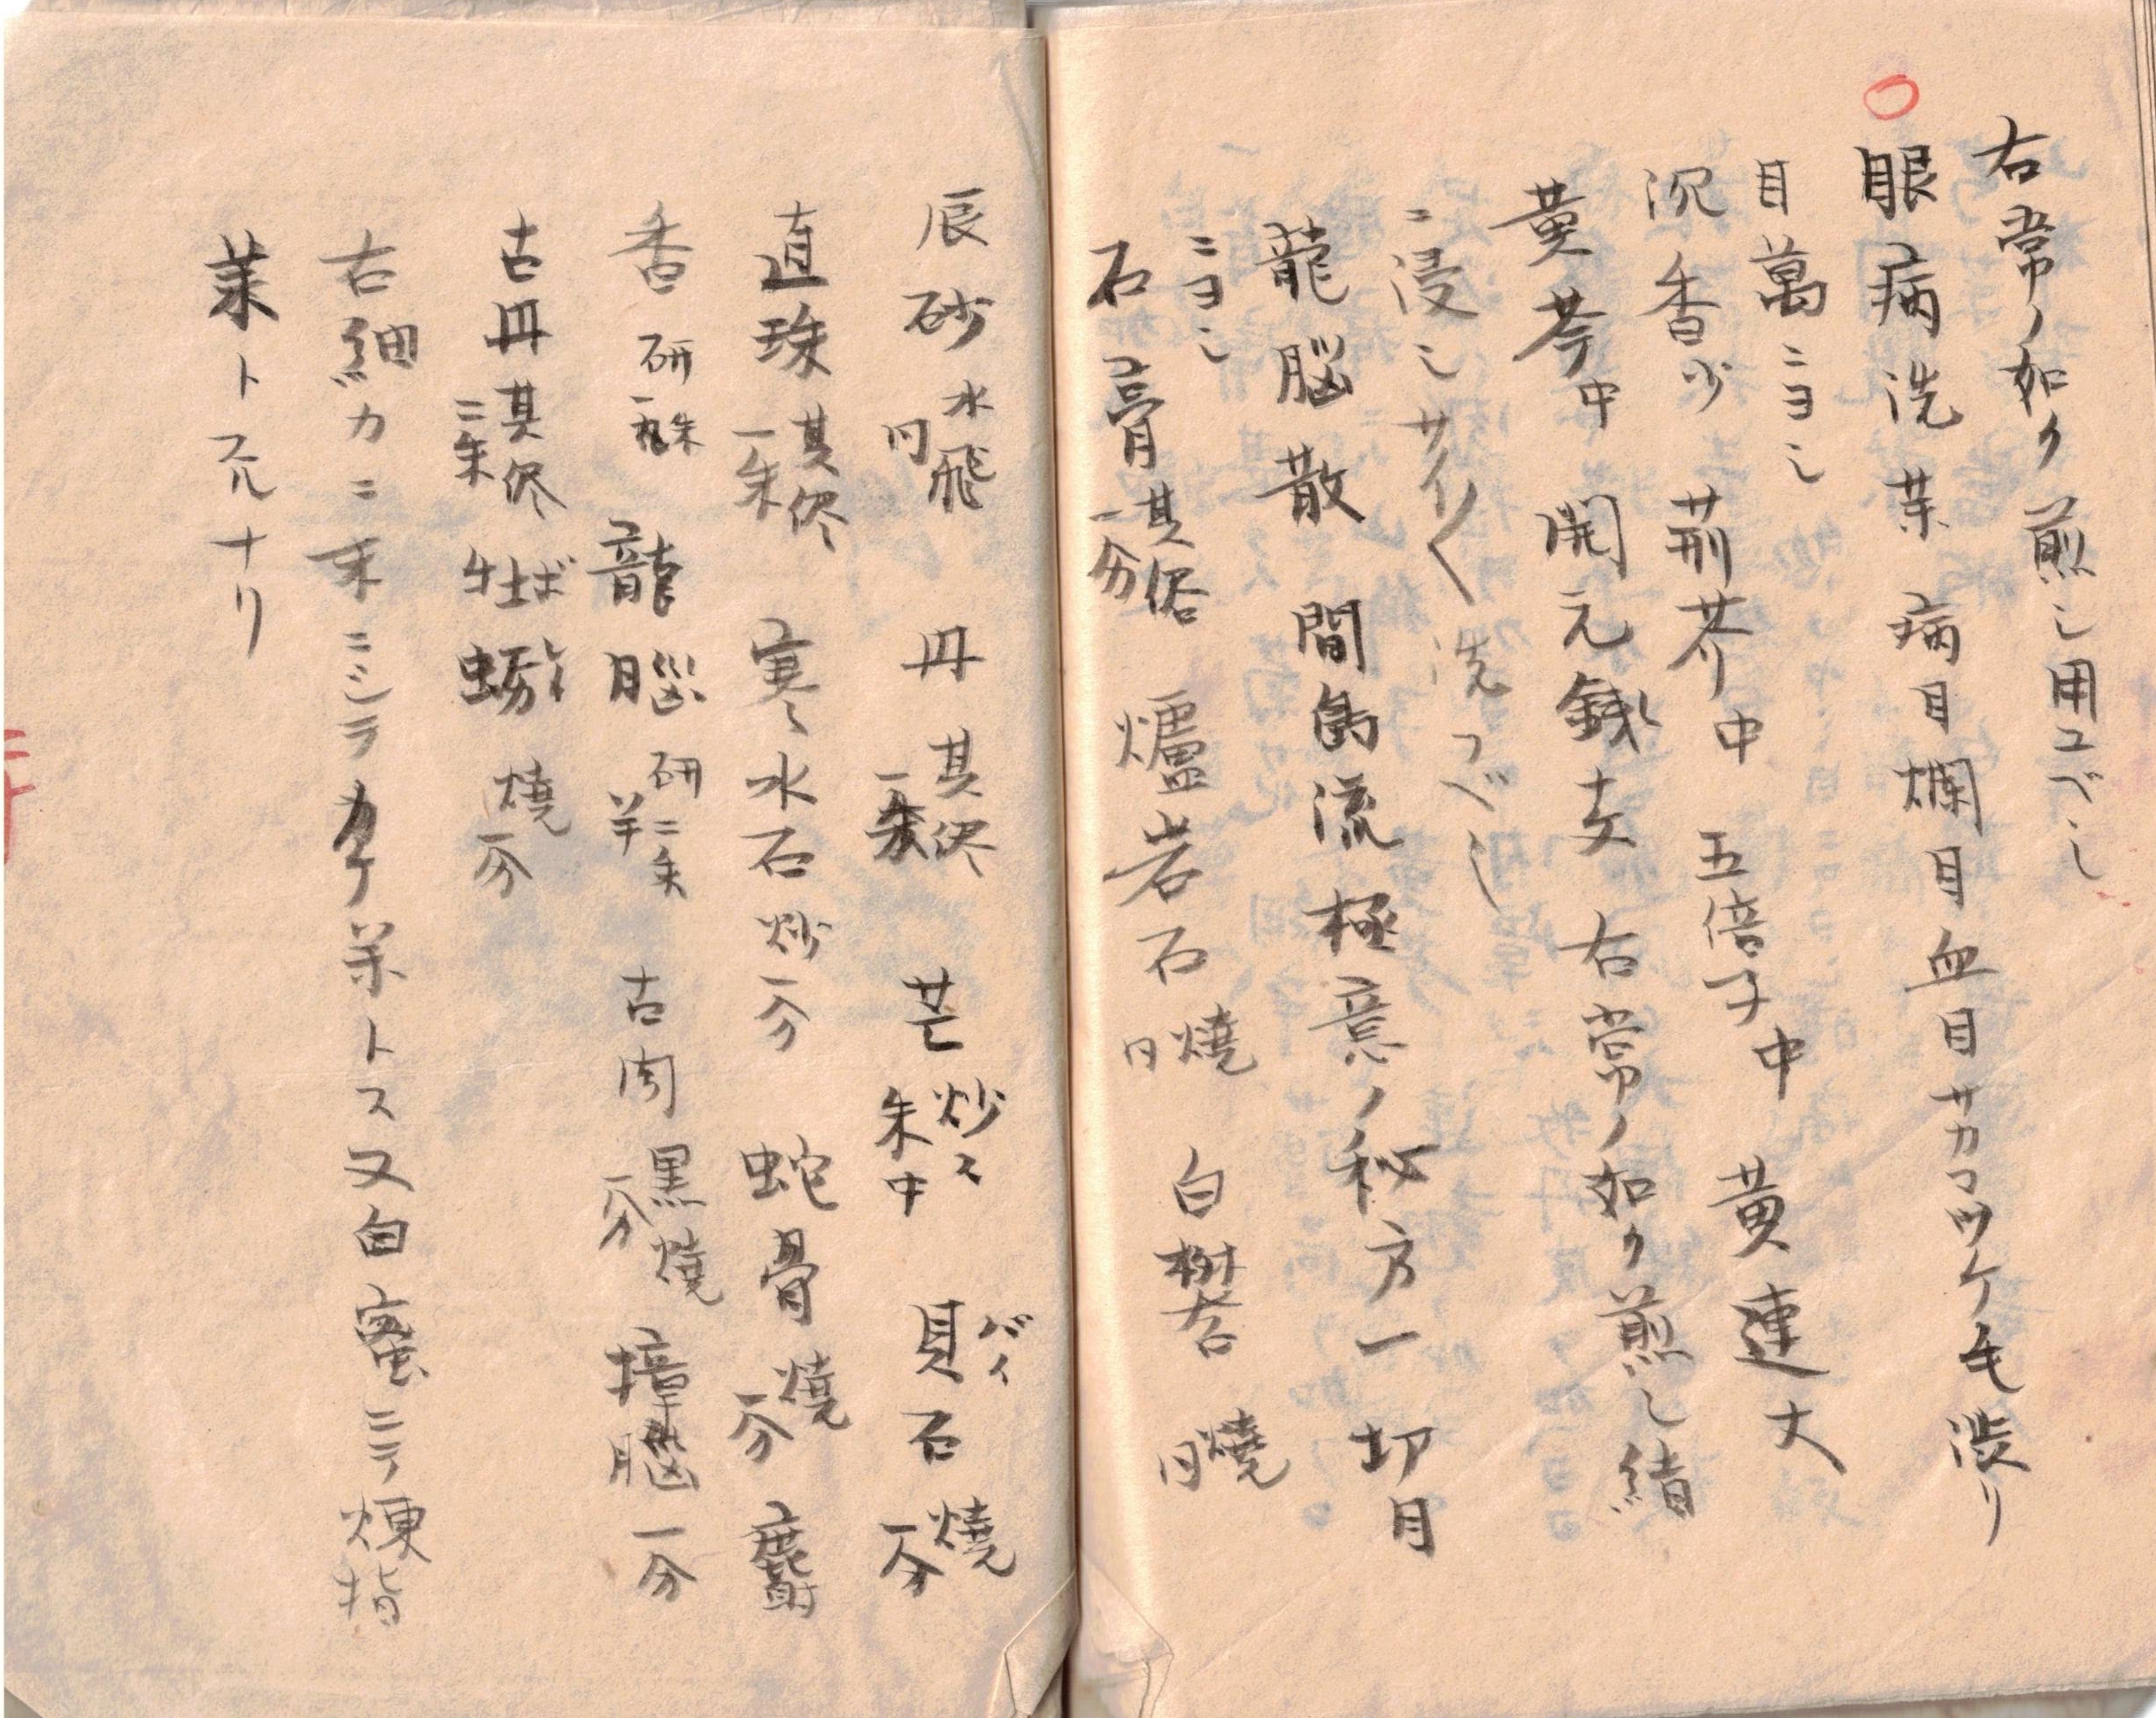 右常ノ如ク煎シ用ユベシ
眼病洗薬 病目爛目血目サカマツケ毛渋リ
目萬ニヨシ
沉香少 荊芥中 五倍子中 黄連大
黄芩中 開元銭 右常ノ如ク煎シ絹
ニ浸シサイ〱洗フベシ
龍脳散 間島流極意ノ秘方一切目
ニヨシ
石膏 一分 爐岩石 焼 同 白礬 焼 同
辰砂 水飛 同 丹 其侭 一朱 芒 炒 朱中 貝石 バイ 焼 一分
直珠 其侭 一朱 寒水石 炒 一分 蛇骨 焼 一分 麝
香 研 龍脳 研 古肉 黒焼 一分 樟脳 一分
古丹 其侭 二朱 牡蛎 ボレイ 焼 一分
右細カニ末ニシテカケ薬トス又白蜜ニテ煉指
薬トスルナリ